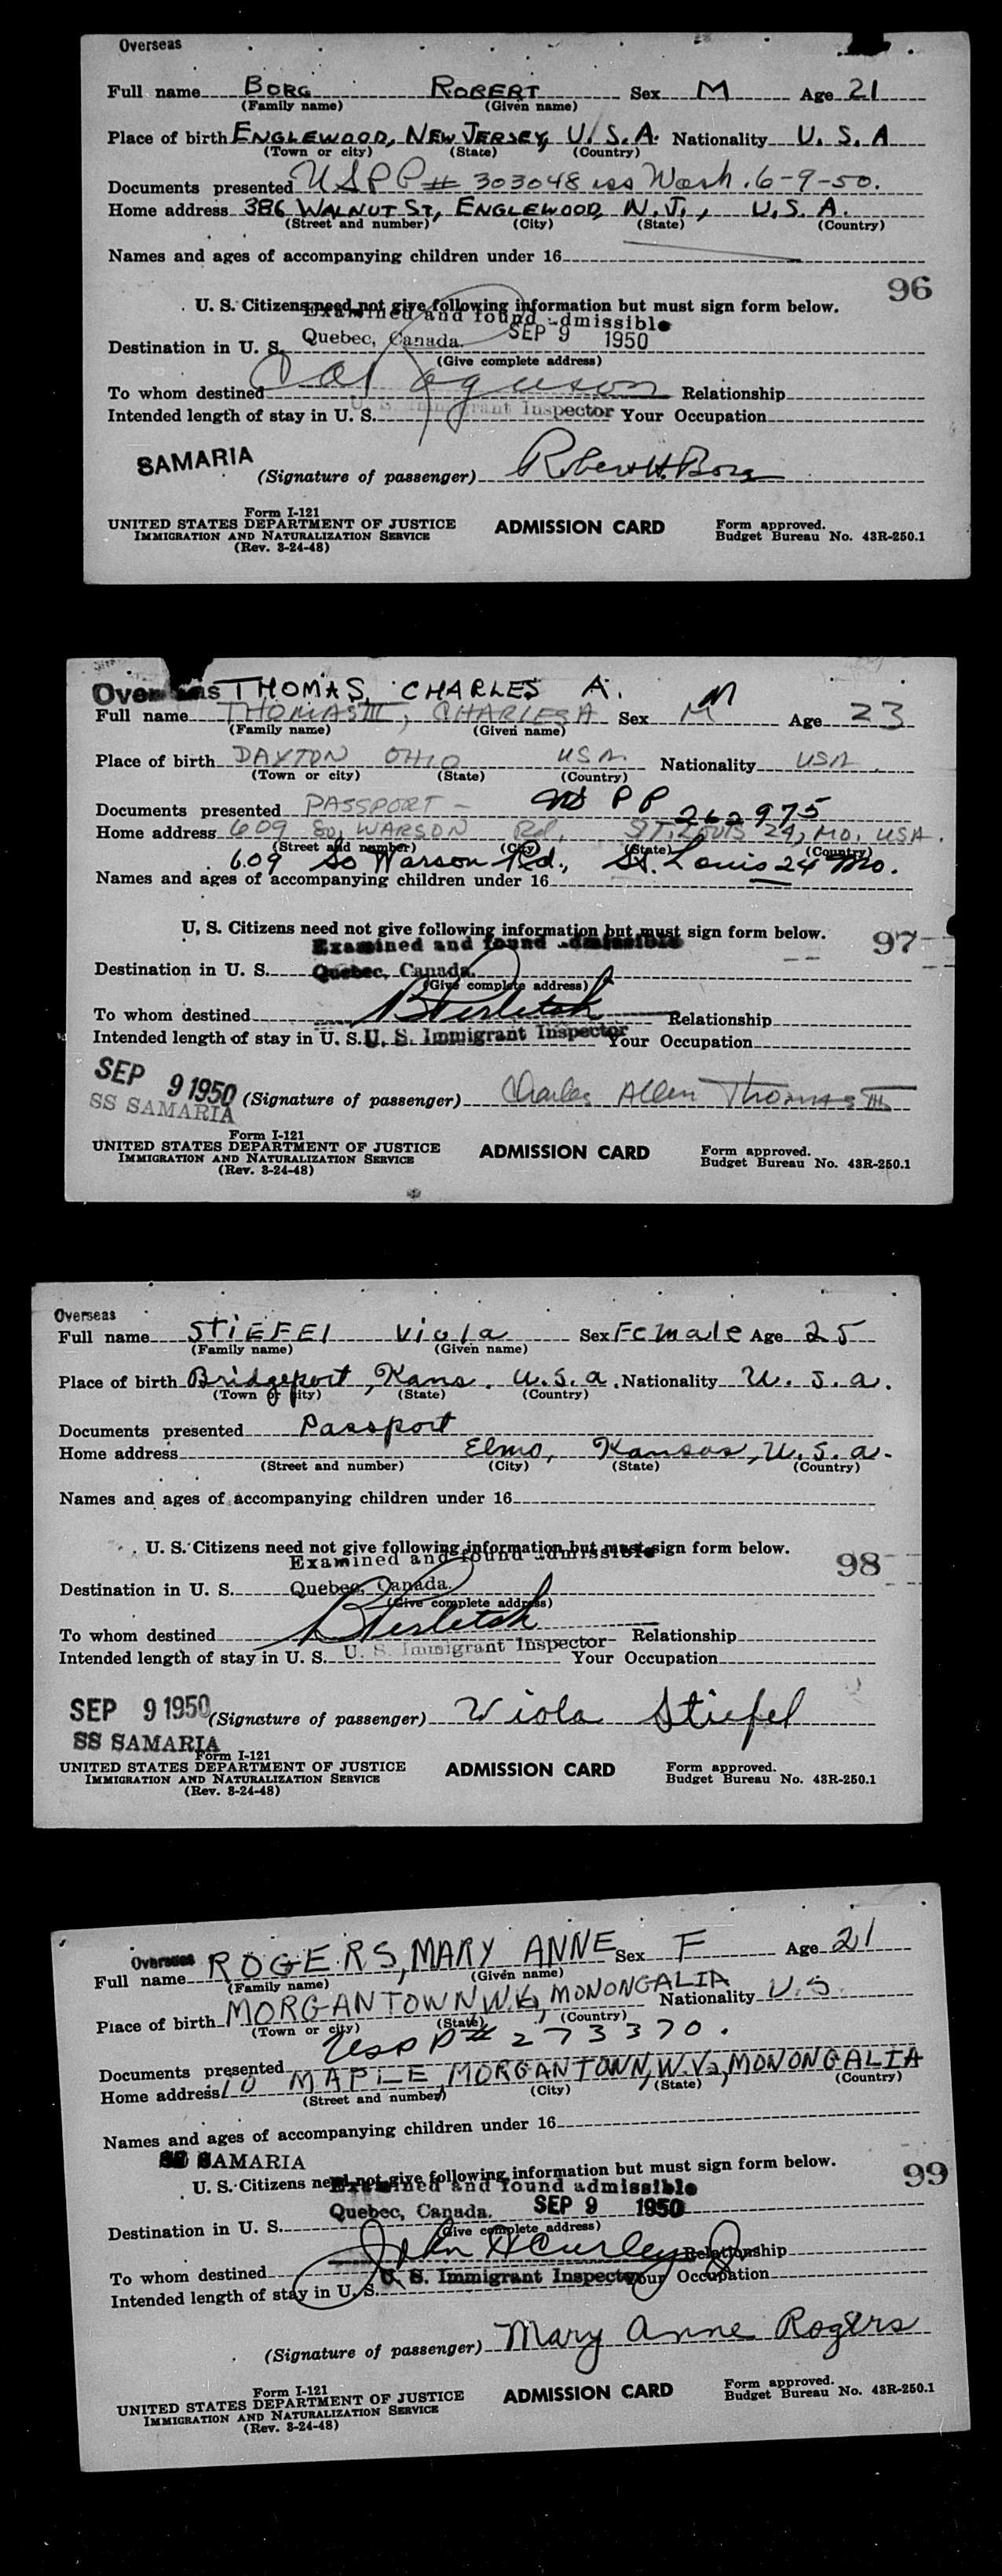 Overseas
Full name BORG ROBERT Sex M Age 21
(Family name) (Given name)
Place of birth ENGLEWOOD, NEW JERSEY, U.S.A. Nationality U.S.A
(Town or city) (State) (Country)
Documents presented USPP # 303048 iss Wash. 6-9-50.
Home address 386 WALNUT ST, ENGLEWOOD, N.J., U.S.A.
(Street and number) (City) (State) (Country)
Names and ages of accompanying children under 16
96
U. S. Citizens need not give following information but must sign form below.
Examined and found admissible
Quebec, Canada. SEP 9 1950
Destination in U. S.
(Give complete address)
To whom destined Relationship
U. S. Immigrant Inspector
Intended length of stay in U. S. Your Occupation
SAMARIA
(Signature of passenger) Robert H. Borg
Form I-121
UNITED STATES DEPARTMENT OF JUSTICE ADMISSION CARD Form approved.
IMMIGRATION AND NATURALIZATION SERVICE Budget Bureau No. 43R-250.1
(Rev. 3-24-48)
Overseas THOMAS, CHARLES A. M
Full name THOMAS III, CHARLES A Sex M Age 23
(Family name) (Given name)
Place of birth DAYTON OHIO USA Nationality USA
(Town or city) (State) (Country)
Documents presented PASSPORT - US PP 262975
Home address 609 So. WARSON Rd, ST. LOUIS 24, MO, USA.
(Street and number) (City) (State) (Country)
609 So Warson Rd., St. Louis 24 Mo.
Names and ages of accompanying children under 16
U. S. Citizens need not give following information but must sign form below.
Examined and found admissible
97
Destination in U. S. Quebec, Canada.
(Give complete address)
To whom destined Relationship
Intended length of stay in U. S. U. S. Immigrant Inspector Your Occupation
SEP 9 1950
SS SAMARIA
(Signature of passenger) Charles Allen Thomas III
Form I-121
UNITED STATES DEPARTMENT OF JUSTICE ADMISSION CARD Form approved.
IMMIGRATION AND NATURALIZATION SERVICE Budget Bureau No. 43R-250.1
(Rev. 3-24-48)
Overseas
Full name STIEFEl Viola Sex Female Age 25
(Family name) (Given name)
Place of birth Bridgeport, Kans. U.S.a. Nationality U.S.a.
(Town or city) (State) (Country)
Documents presented Passport
Home address Elmo, Kansas, U.S.a.
(Street and number) (City) (State) (Country)
Names and ages of accompanying children under 16
U. S. Citizens need not give following information but must sign form below.
Examined and found admissible
98
Destination in U. S. Quebec, Canada.
(Give complete address)
To whom destined Relationship
Intended length of stay in U. S. U. S. Immigrant Inspector Your Occupation
SEP 9 1950
(Signature of passenger) Viola Stiefel
SS SAMARIA
Form I-121
UNITED STATES DEPARTMENT OF JUSTICE ADMISSION CARD Form approved.
IMMIGRATION AND NATURALIZATION SERVICE Budget Bureau No. 43R-250.1
(Rev. 3-24-48)
Overseas
Full name ROGERS, MARY ANNE Sex F Age 21
(Family name) (Given name)
Place of birth MORGANTOWN W.Va, MONONGALIA Nationality U.S.
(Town or city) (State) (Country)
Documents presented USPP# 273370.
Home address 10 MAPLE, MORGANTOWN, W.Va, MONONGALIA
(Street and number) (City) (State) (Country)
Names and ages of accompanying children under 16
SS SAMARIA
U. S. Citizens need not give following information but must sign form below.
Examined and found admissible
99
Quebec, Canada. SEP 9 1950
Destination in U. S.
(Give complete address)
To whom destined Relationship
U. S. Immigrant Inspector
Intended length of stay in U. S. Your Occupation
(Signature of passenger) Mary Anne Rogers
Form I-121
UNITED STATES DEPARTMENT OF JUSTICE ADMISSION CARD Form approved.
IMMIGRATION AND NATURALIZATION SERVICE Budget Bureau No. 43R-250.1
(Rev. 3-24-48)